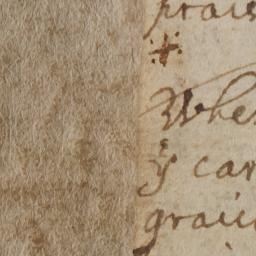 prais
Whe
ÿ car
graci